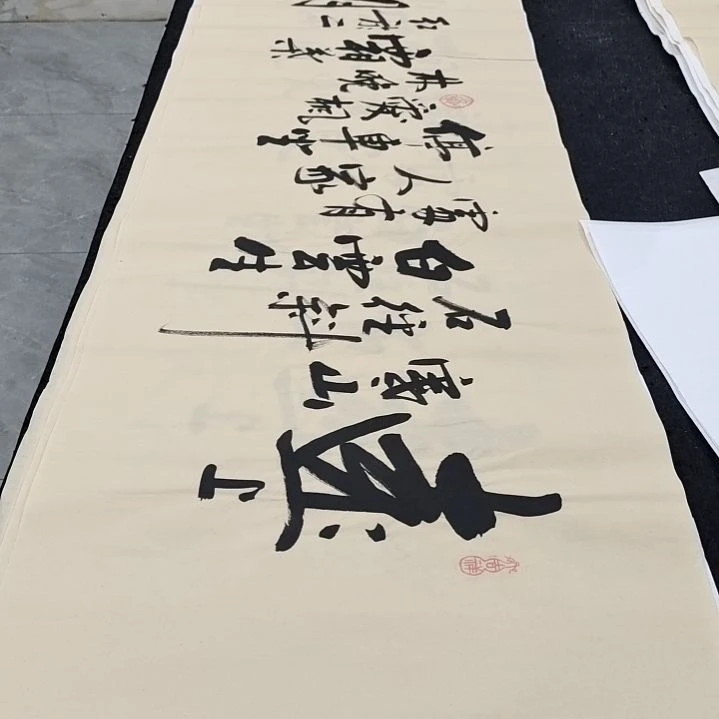 遠上
寒山
石径斜
白雲生
處有
人家
停車坐
愛楓
林晚
霜葉
紅於二
月